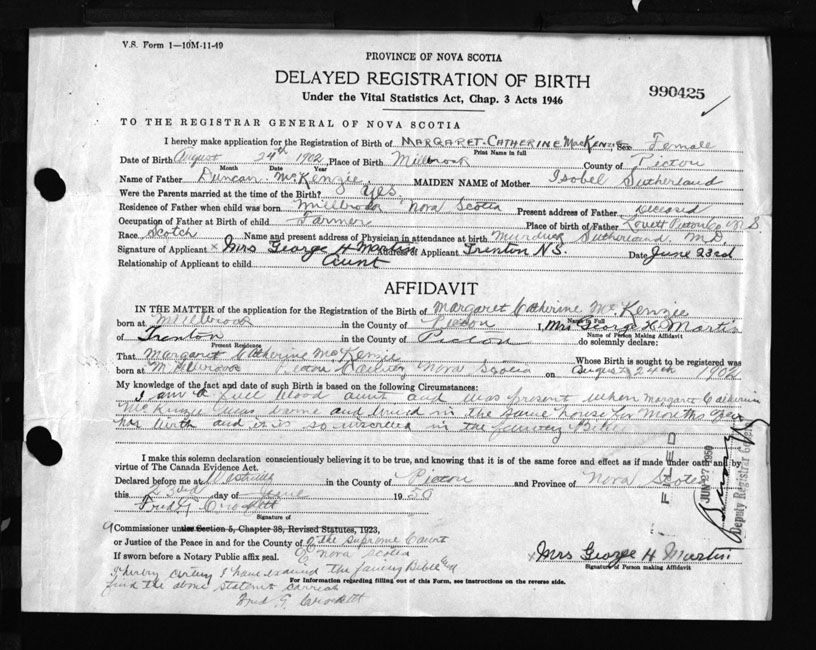 V.S. Form 1—10M-11-49
PROVINCE OF NOVA SCOTIA
DELAYED REGISTRATION OF BIRTH
990425
Under the Vital Statistics Act, Chap. 3 Acts 1946
TO THE REGISTRAR GENERAL OF NOVA SCOTIA
I hereby make application for the Registration of Birth of MARGARET CATHERINE MacKENZIE Sex Female
Print Name in full
Date of Birth August 24th 1902 Place of Birth Millbrook County of Pictou
Month Date Year
Name of Father Duncan McKenzie MAIDEN NAME of Mother Isobel Sutherland
Were the Parents married at the time of the Birth? Yes
Residence of Father when child was born Millbrook Nova Scotia Present address of Father
Occupation of Father at Birth of child Farmer Place of birth of Father Lovett Pictou Co N.S.
Race Scotch Name and present address of Physician in attendance at birth Sutherland M.D.
Signature of Applicant x Mrs George H Martin Address of Applicant Trenton N.S. Date June 23rd
Relationship of Applicant to child Aunt
AFFIDAVIT
IN THE MATTER of the application for the Registration of the Birth of Margaret Catherine McKenzie
Name in Full
born at Millbrook in the County of Pictou I, Mrs George H Martin
Name of Person Making Affidavit
of Trenton in the County of Pictou do solemnly declare:
Present Residence
That Margaret Catherine McKenzie Whose Birth is sought to be registered was
born at Millbrook Pictou County Nova Scotia on August 24th 1902
My knowledge of the fact and date of such Birth is based on the following Circumstances:
I am a full blood aunt and was present when Margaret Catherine
McKenzie was borne and lived in the same house for months
birth and it is so in the family Bible
I make this solemn declaration conscientiously believing it to be true, and knowing that it is of the same force and effect as if made under oath and by
virtue of The Canada Evidence Act.
Declared before me at Westville in the County of Pictou and Province of Nova Scotia
this 23rd day of June 1950
Fred G Crockett
Signature of
A Commissioner under Section 5, Chapter 38, Revised Statutes, 1923,
or Justice of the Peace in and for the County of the Supreme Court
If sworn before a Notary Public affix seal. Nova Scotia
Mrs George H Martin
Signature of Person making Affidavit
I hereby certify I have examined the family Bible and
find the above statement correct
For Information regarding filling out of this Form, see instructions on the reverse side.
Fred G Crockett
FILED
JUN 27 1950
Deputy Registrar General